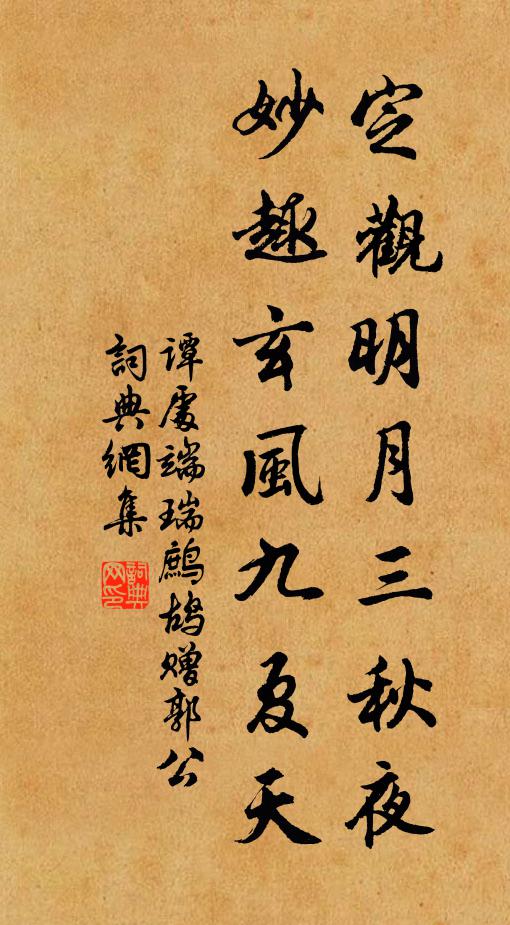 定觀明月三秋夜
妙趣玄風九夏天
譚處端瑞鷓鴣赠郭公
詞典網集
詞典網印